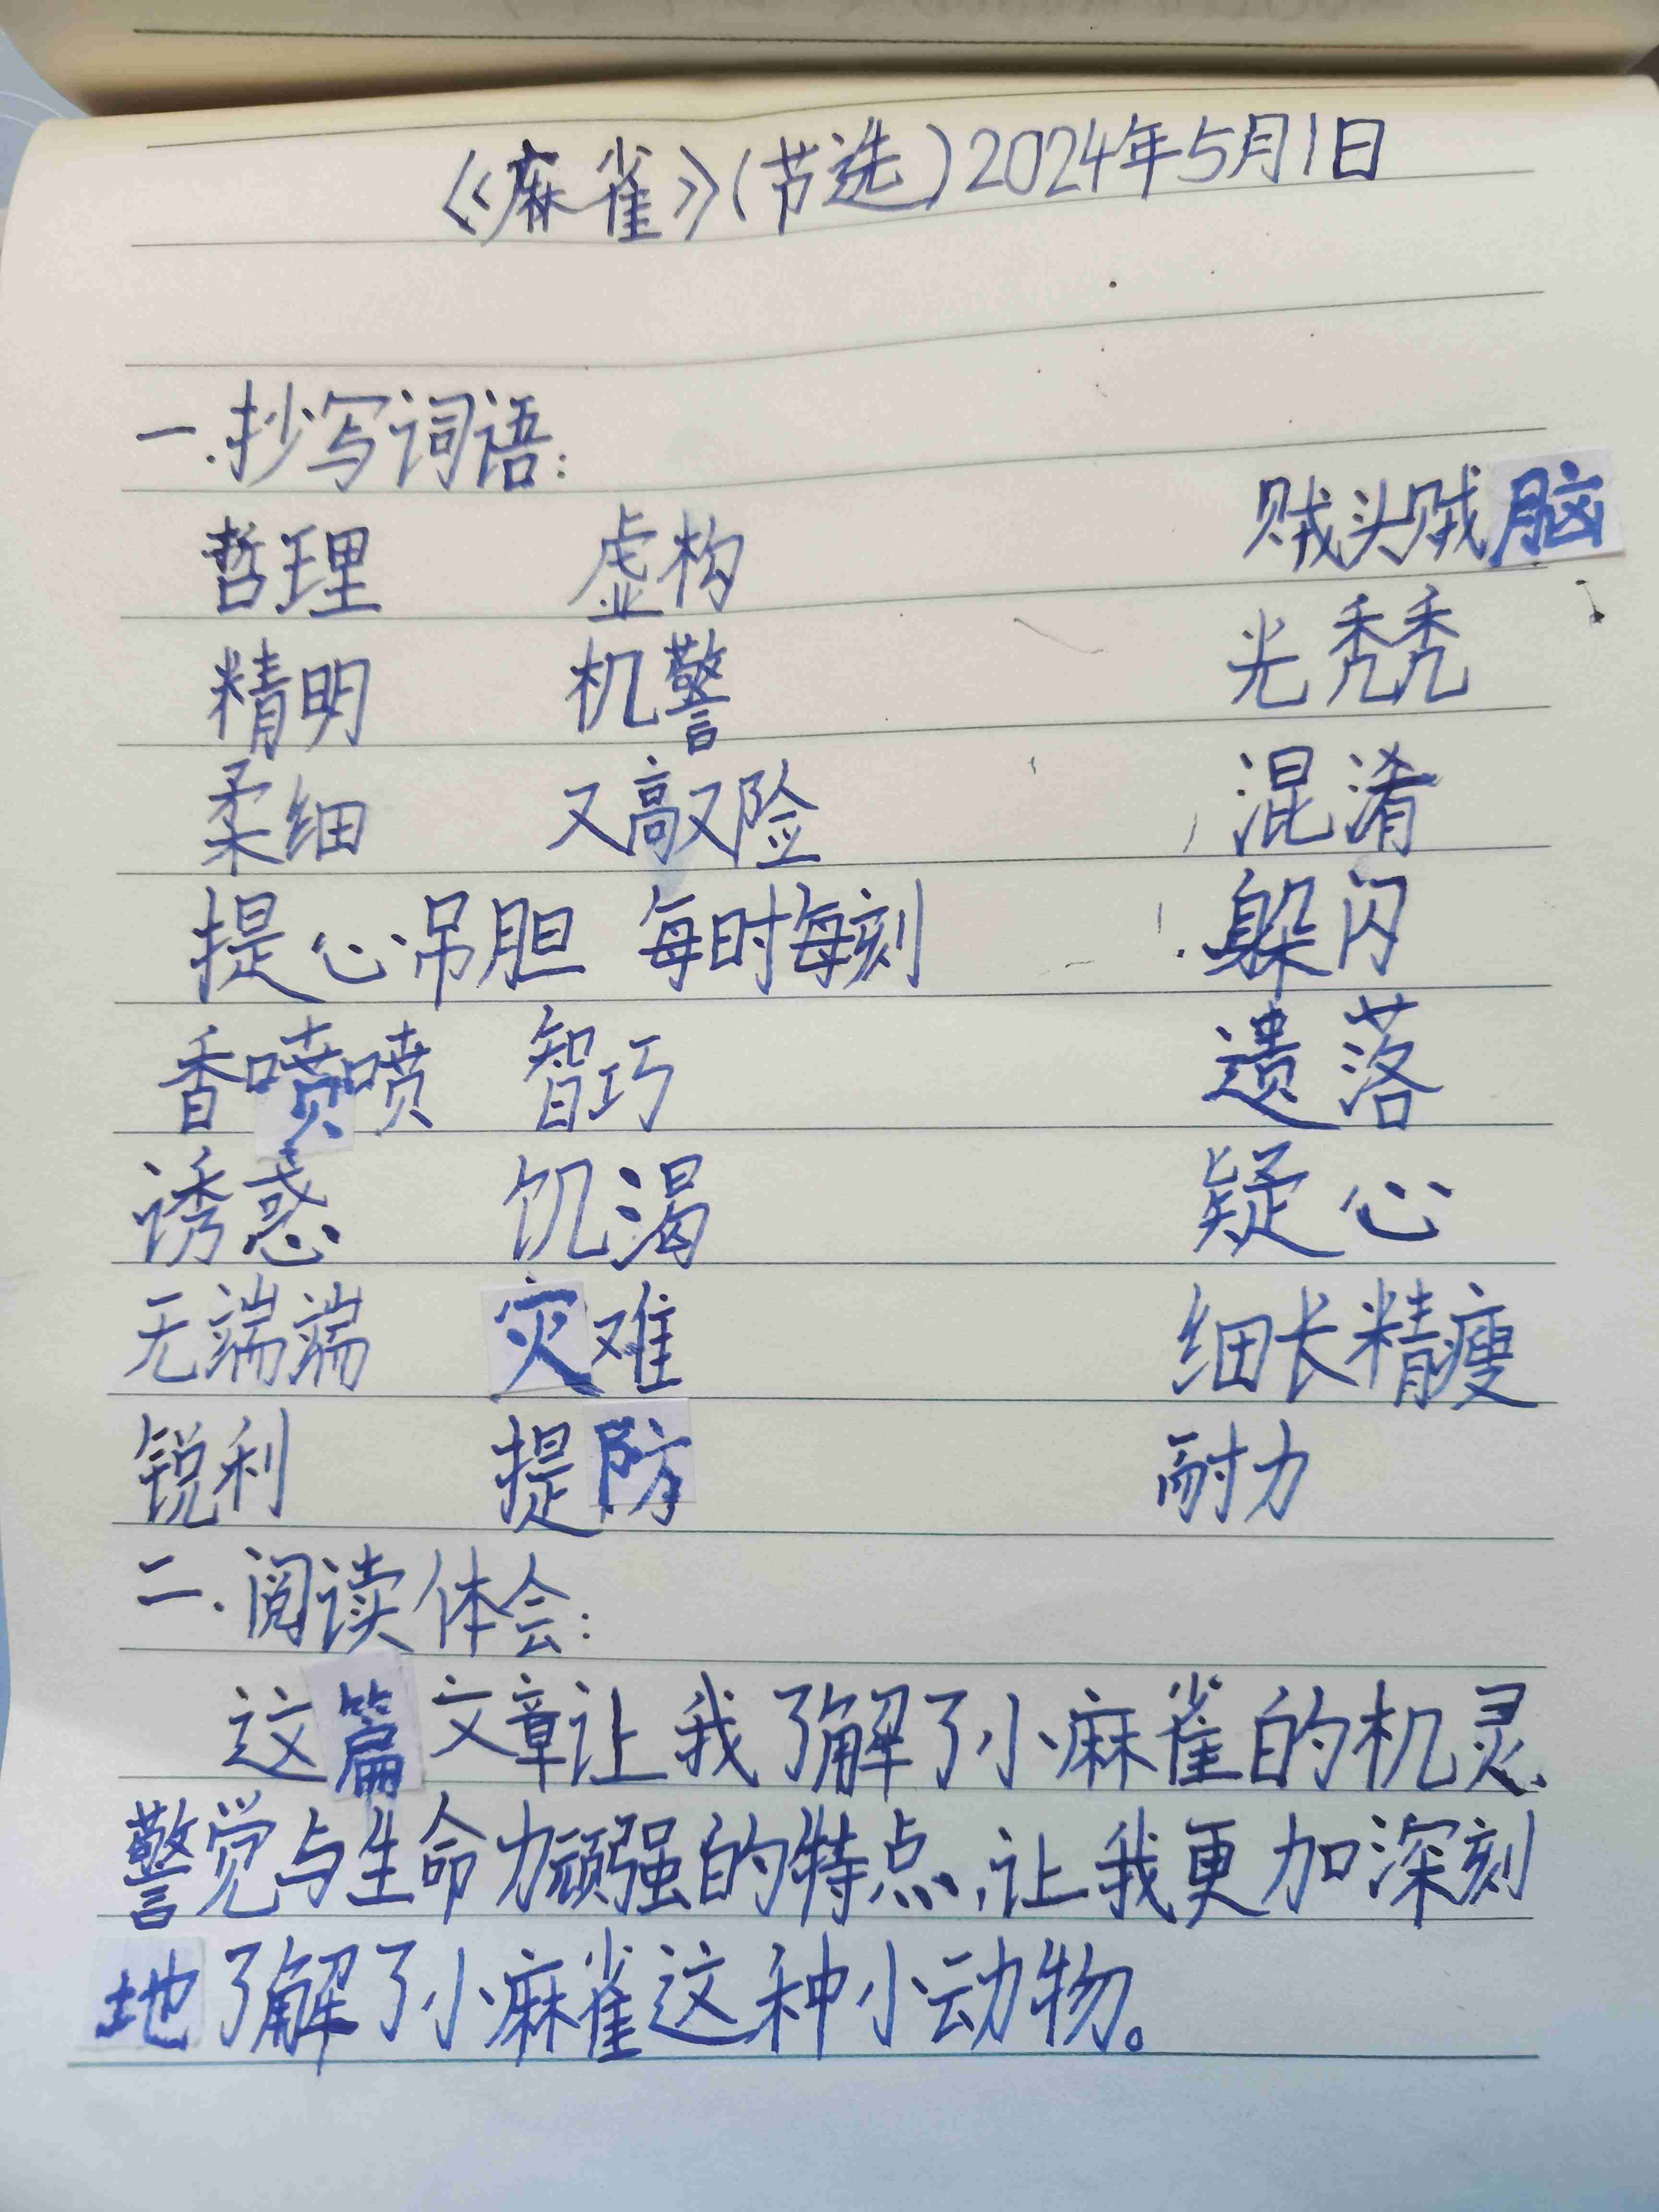 《麻雀》(节选)2024年5月1日
一.抄写词语:
哲理 虚构 贼头贼脑
精明 机警 光秃秃
柔细 又高又险 混淆
提心吊胆 每时每刻 躲闪
香喷喷 智巧 遗落
诱惑 饥渴 疑心
无端端 灾难 细长精瘦
锐利 提防 耐力
二.阅读体会:
这篇文章让我了解了小麻雀的机灵、
警觉与生命力顽强的特点,让我更加深刻
地了解了小麻雀这种小动物。